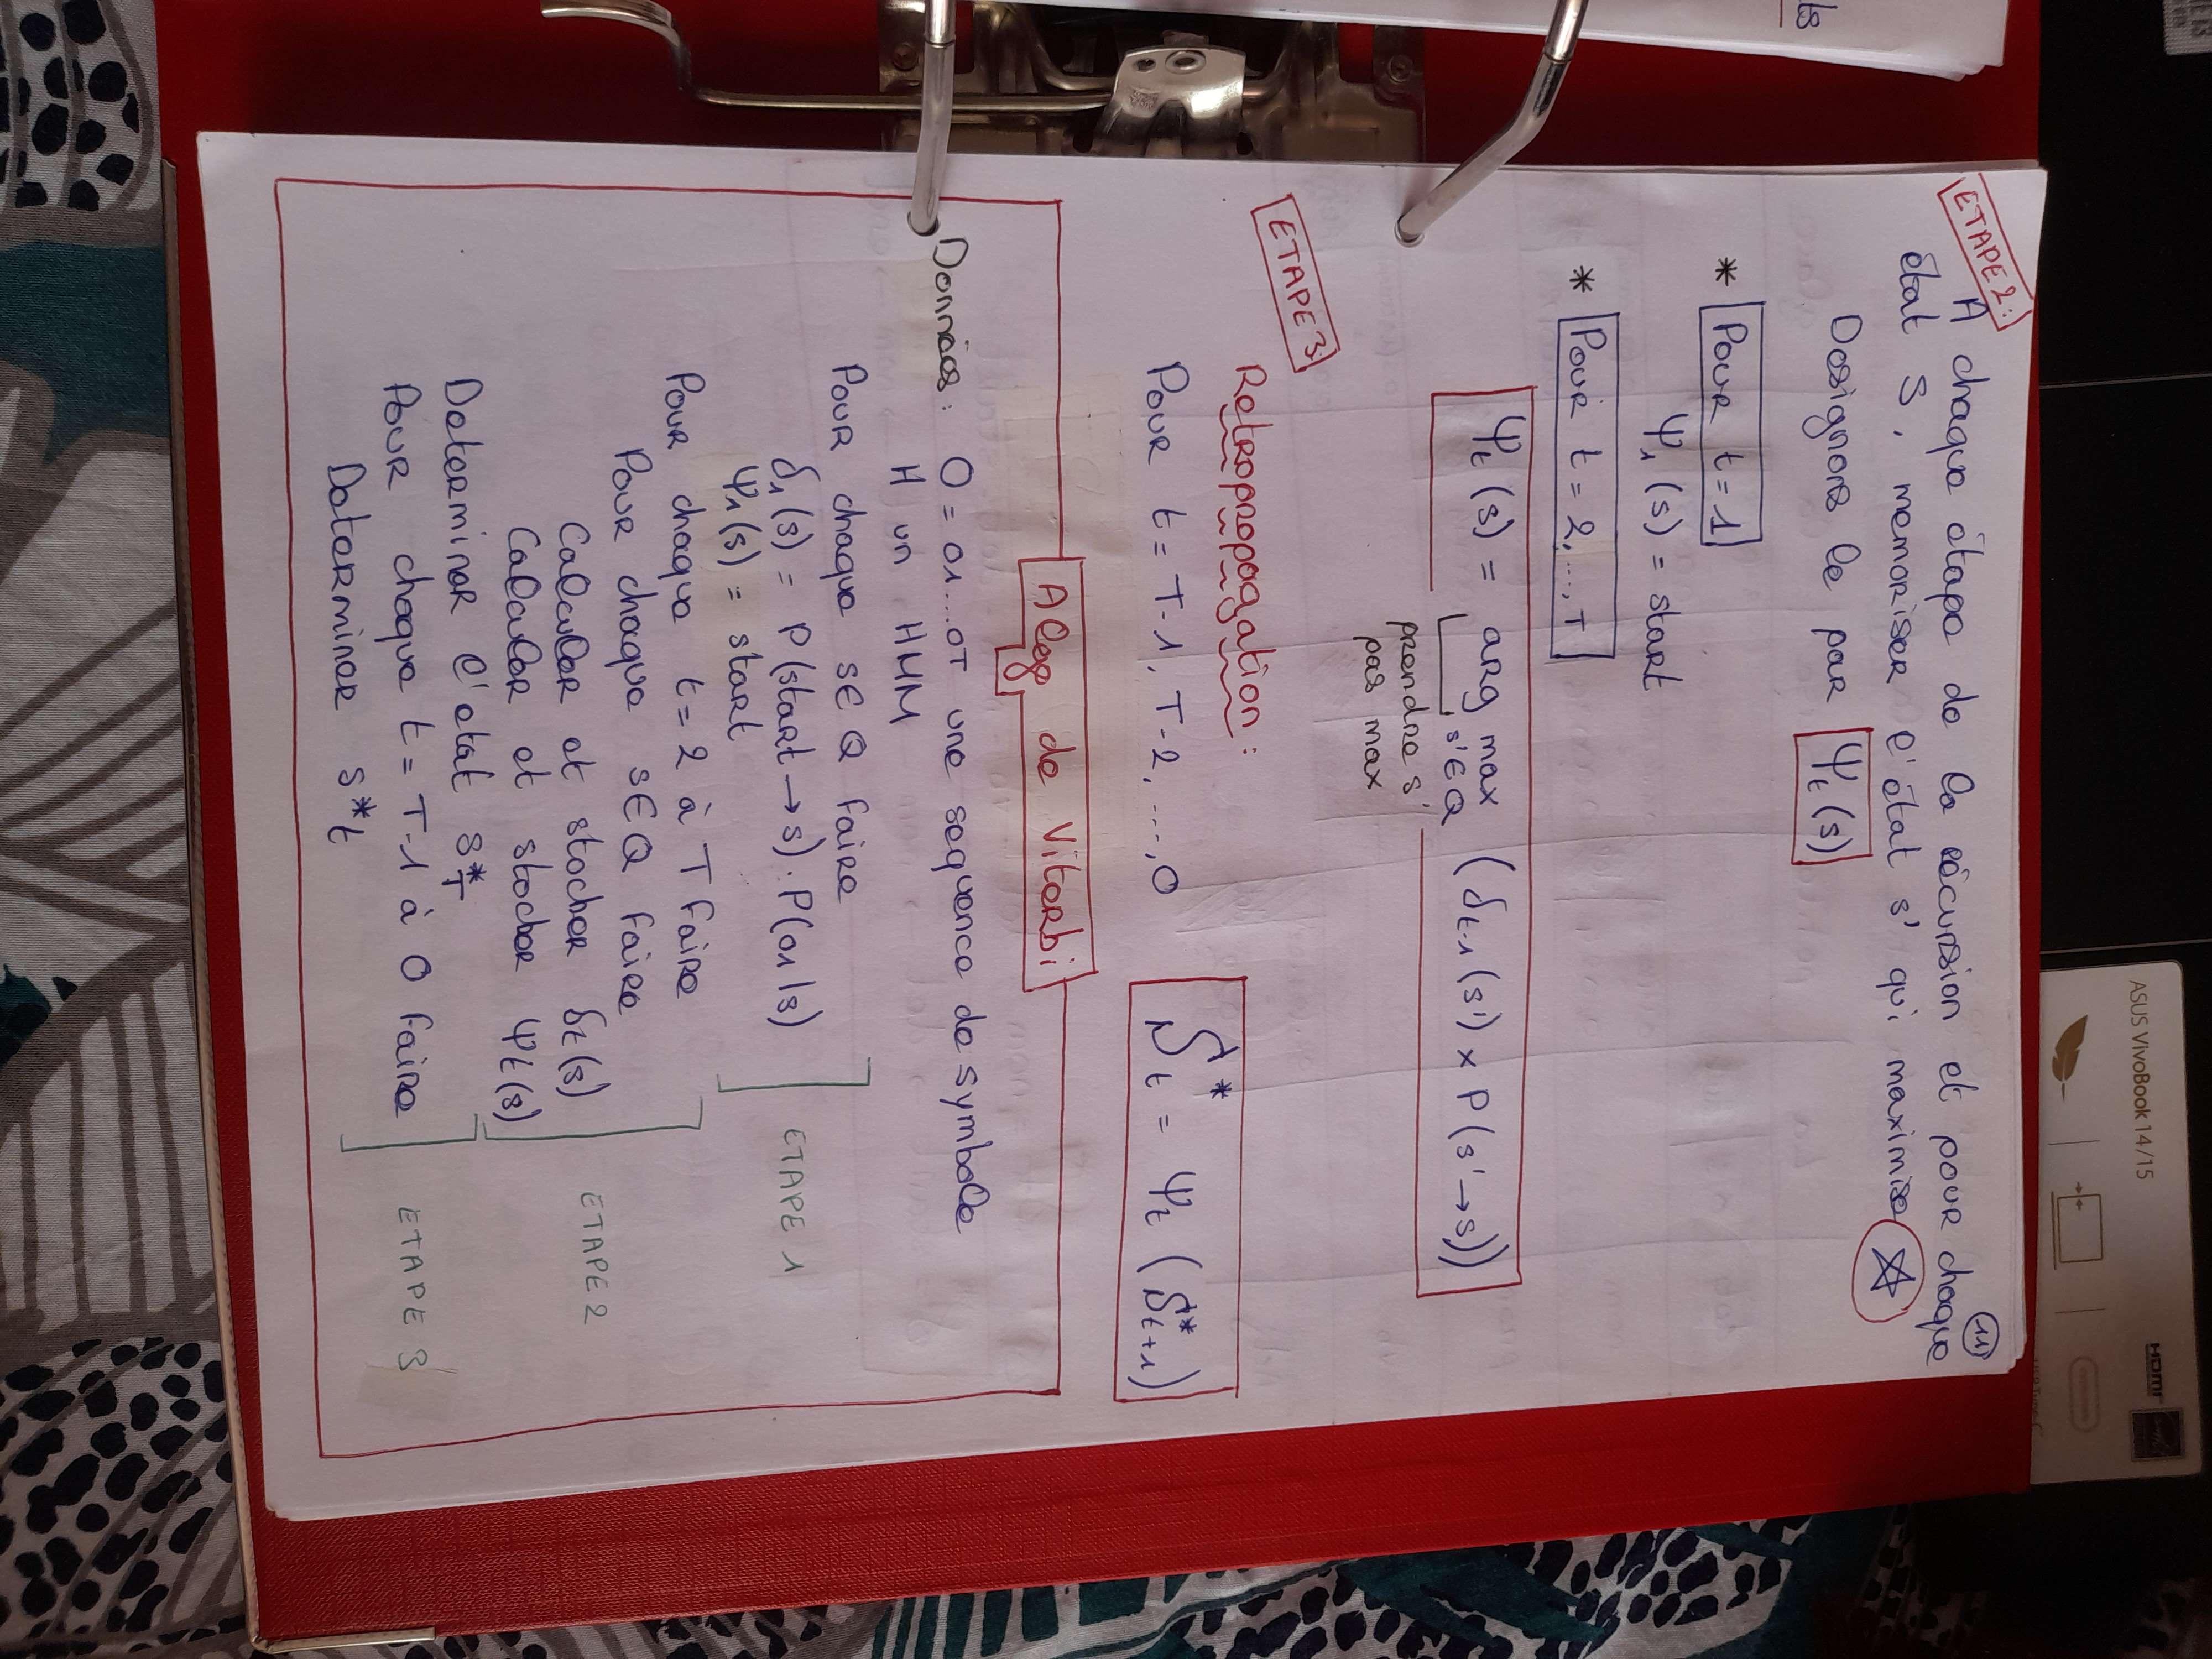 ASUS VivoBook 14/15
HDMI
ts
ETAPE 2:
11
A chaque étape de la récursion et pour chaque
état s, memoriser l'état s' qui maximise ☆
Designons le par Ψt(s)
* Pour t = 1
Ψ1(s) = start
* Pour t = 2, ..., T
Ψt(s) = arg max s'∈Q (δt-1(s') × P(s'→s))
prendre s'
pas max
ETAPE 3:
Retropropagation :
Pour t = T-1, T-2, ..., 0
S*t = Ψt(S*t+1)
Algo de Viterbi
Données : O = o1...oT une sequence de symbole
H un HMM
Pour chaque s∈Q faire
δ1(s) = P(start→s) . P(o1|s)
Ψ1(s) = start
ETAPE 1
Pour chaque t = 2 à T faire
Pour chaque s∈Q faire
Calculer et stocker δt(s)
Calculer et stocker Ψt(s)
ETAPE 2
Determiner l'etat s*T
Pour chaque t = T-1 à 0 faire
Determiner s*t
ETAPE 3